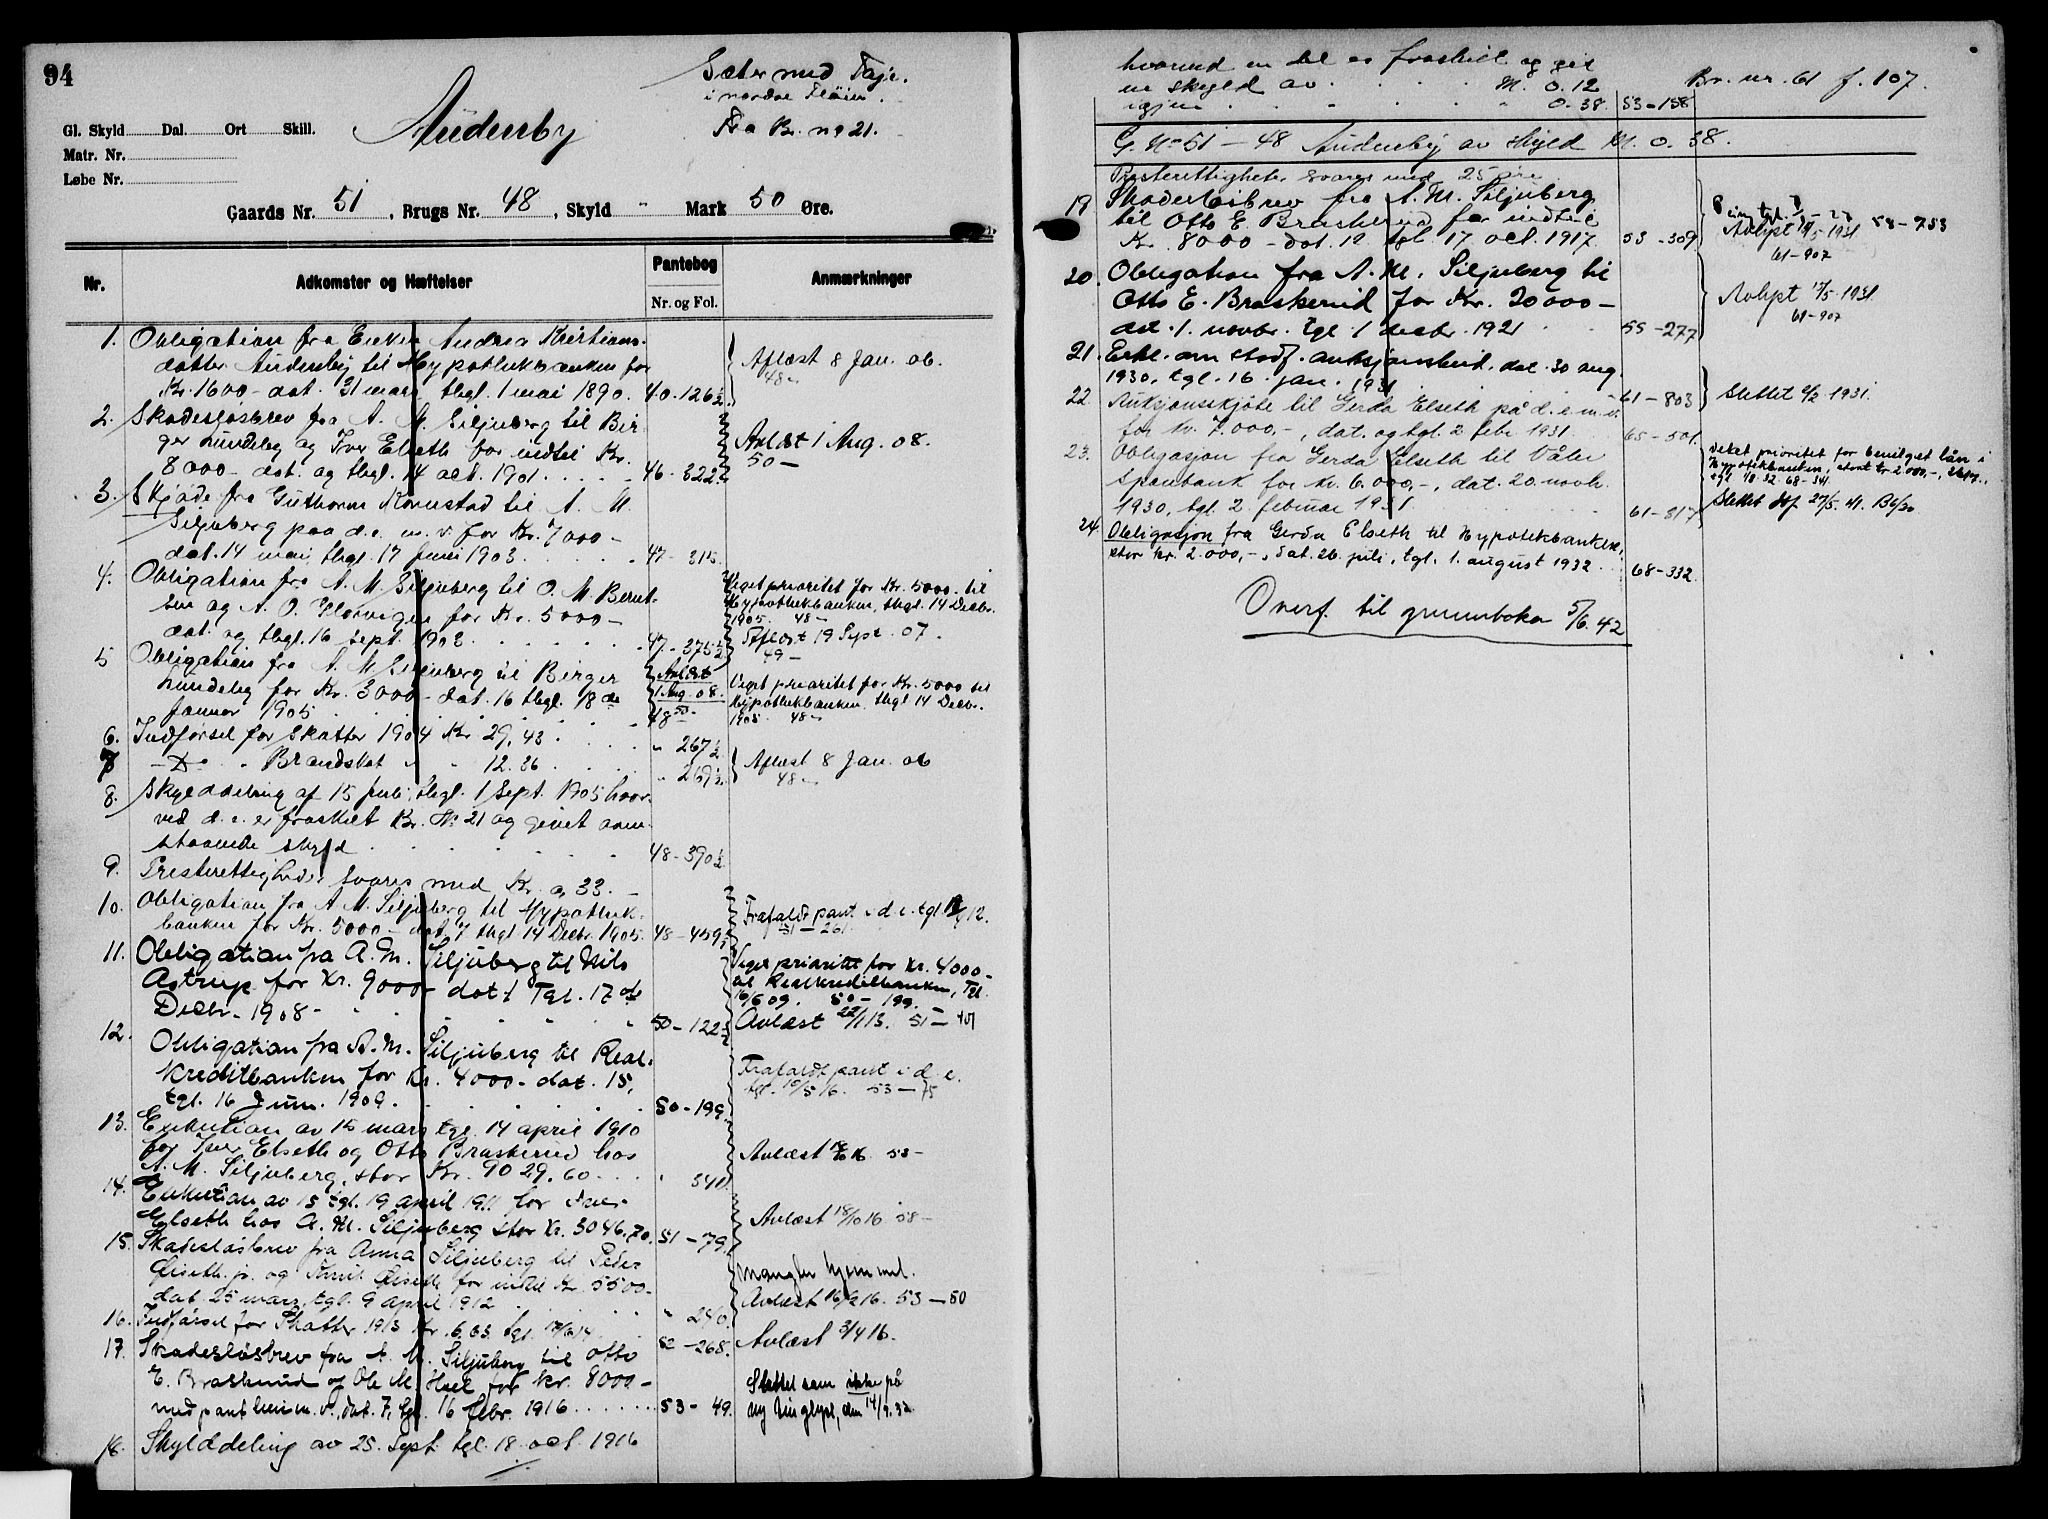 94
Sæter med
i nordre Fløien.
Gl. Skyld Dal. Ort Skill.
Audensby
Fra Br. no 21.
Matr. Nr.
Løbe Nr.
Gaards Nr. 51, Brugs Nr. 48, Skyld " Mark 50 Øre.
Nr. Adkomster og Hæftelser Pantebog Anmærkninger
Nr. og Fol.
1. Obligation fra Enken Andrea Kristians-
datter Audensby til Hypothekbanken for
Kr. 1600 - dat. 31 mars, thgl. 1 mai 1890. 40-126½
Aflæst 8 Jan. 06.
48-
2. Skadesløsbrev fra A. M. Siljuberg til Bir-
ger Lundeby og Iver Elseth for indtil Kr.
8000 - dat. og thgl. 14 oct. 1901. 46-322
Avlæst 1 Aug. 08.
50-
3. Skjøde fra Guthorm Kornstad til A. M.
Siljuberg paa d.e. m.v. for Kr. 7000-
dat. 14 mai, thgl. 17 Juni 1903. 47-315
4. Obligation fra A. M. Siljuberg til O. M. Bernt-
sen og A. O. for Kr. 5000-
dat. og thgl. 16 sept. 1903. 47-375½
Veget prioritet for Kr. 5000.- til
Hypothekbanken, thgl. 14 Decbr.
1905. 48-
Aflæst 19 Sept. 07.
49-
5 Obligation fra A. M. Siljuberg til Birger
Lundeby for Kr. 3000 - dat. 16 thgl. 18 de
Januar 1905 48
Avlæst
1 Aug. 08.
50-
Veget prioritet for Kr. 5000 til
Hypothekbanken, thgl. 14 Decbr.
1905. 48-
6. Indførsel for Skatter 1904 Kr. 29,43 " 267½
7 - Do - " Brandskat " " 12.36 " 269½
Aflæst 8 Jan. 06
48-
8. Skylddeling af 15 juli, thgl. 1 Sept. 1905 hvor-
ved d.e. er fraskilt Br. No 21 og givet oven-
staaende skyld 48-390½
9. Presterettigheder svares med Kr. 0,33.-
10. Obligation fra A M. Siljuberg til Hypothek-
banken for Kr. 5000 - dat. 7 thgl. 14 Decbr. 1905. 48-459½
Frafaldt pant i d.e. tgl. 12.
51-261
11. Obligation fra A. M. Siljuberg til Nils
Astrup for Kr. 9000 - dat. 1 Tgl. 17 de
Decbr. 1908- 50-122½
Veget prioritet for Kr. 4000-
til Realkreditbanken, Tgl.
16/6 09. 50-199.
Avlæst 22/1 13. 51-401
12. Obligation fra A. M. Siljuberg til Real-
kreditbanken for Kr. 4000 - dat. 15,
tgl. 16 Juni 1909. 50-199
Frafaldt pant i d.e.
tgl. 10/5 16. 53-75
13. Exekution av 15 mars tgl. 14 april 1910
for Iver Elseth og Otto Braskerud hos
A. M. Siljuberg, stor Kr. 9029,60. " 341
Avlæst 16. 53-
14. Exekution av 15 tgl. 19 april 1911 for Iver
Elseth hos A. M. Siljuberg stor Kr. 3046,70. 51-79
Avlæst 18/10 16 53-
15. Skadesløsbrev fra Anna Siljuberg til Peder
Øiseth jr. og Knut Øiseth for indtil Kr. 5500-
dat. 25 mars, tgl. 9 april 1912 " 240.
Mangler hjemmel.
Avlæst 16/2 16. 53-50
16. Indførsel for Skatter 1913 Kr. 6,63. tgl. 52-268.
Avlæst 3/4 16.
17. Skadesløsbrev fra A. M. Siljuberg til Otto
E. Braskerud og Ole M. for kr. 8000-
med pant i d.e. m.v., dat. 7, tgl. 16 febr. 1916 53-49.
Slettet som ikke på
ny tinglyst, den 14/9.32
18. Skylddeling av 25. sept. tgl. 18. oct. 1916
hvorved en del er fraskilt og git
en skyld av M. 0.12 Br. nr. 61 f. 107.
igjen " 0.38. 53-158
G. No 51-48 Audensby av skyld M. 0.38.
Presterettigheter svares med 25 øre
19 Skadesløsbrev fra A. M. Siljuberg
til Otto E. Braskerud for indtil
Kr. 8000 - dat. 12 tgl. 17 oct. 1917. 53-309
58-753
Avlyst 12/5 1931
61-907
20. Obligation fra A. M. Siljuberg til
Otto E. Braskerud for Kr. 20000-
dat. 1. novbr. tgl. 1 decbr. 1921 55-277
Avlyst 12/5 1931.
61-907
21. Erkl. om stadf. auksjonsbud, dat. 30 aug.
1930, tgl. 16. jan. 1931 61-803
Slettet 2/2 1931.
22. Auksjonsskjøte til Gerda Elseth på d.e. m.v.
for kr. 7.000,-, dat. og tgl. 2 febr. 1931 65-501.
23. Obligasjon fra Gerda Elseth til Våler
Sparebank for kr. 6.000,-, dat. 20. novbr.
1930, tgl. 2. februar 1931 61-817
Veket prioritet for bevilget lån i
Hypotekbanken, stort kr. 2000,-,
tgl. 1/8.32. 68-341.
Slettet 27/5. 41.
24 Obligasjon fra Gerda Elseth til Hypotekbanken,
stor kr. 2.000,-, dat. 26. juli, tgl. 1. august 1932 68-332
Overf. til grunnboka 5/6.42